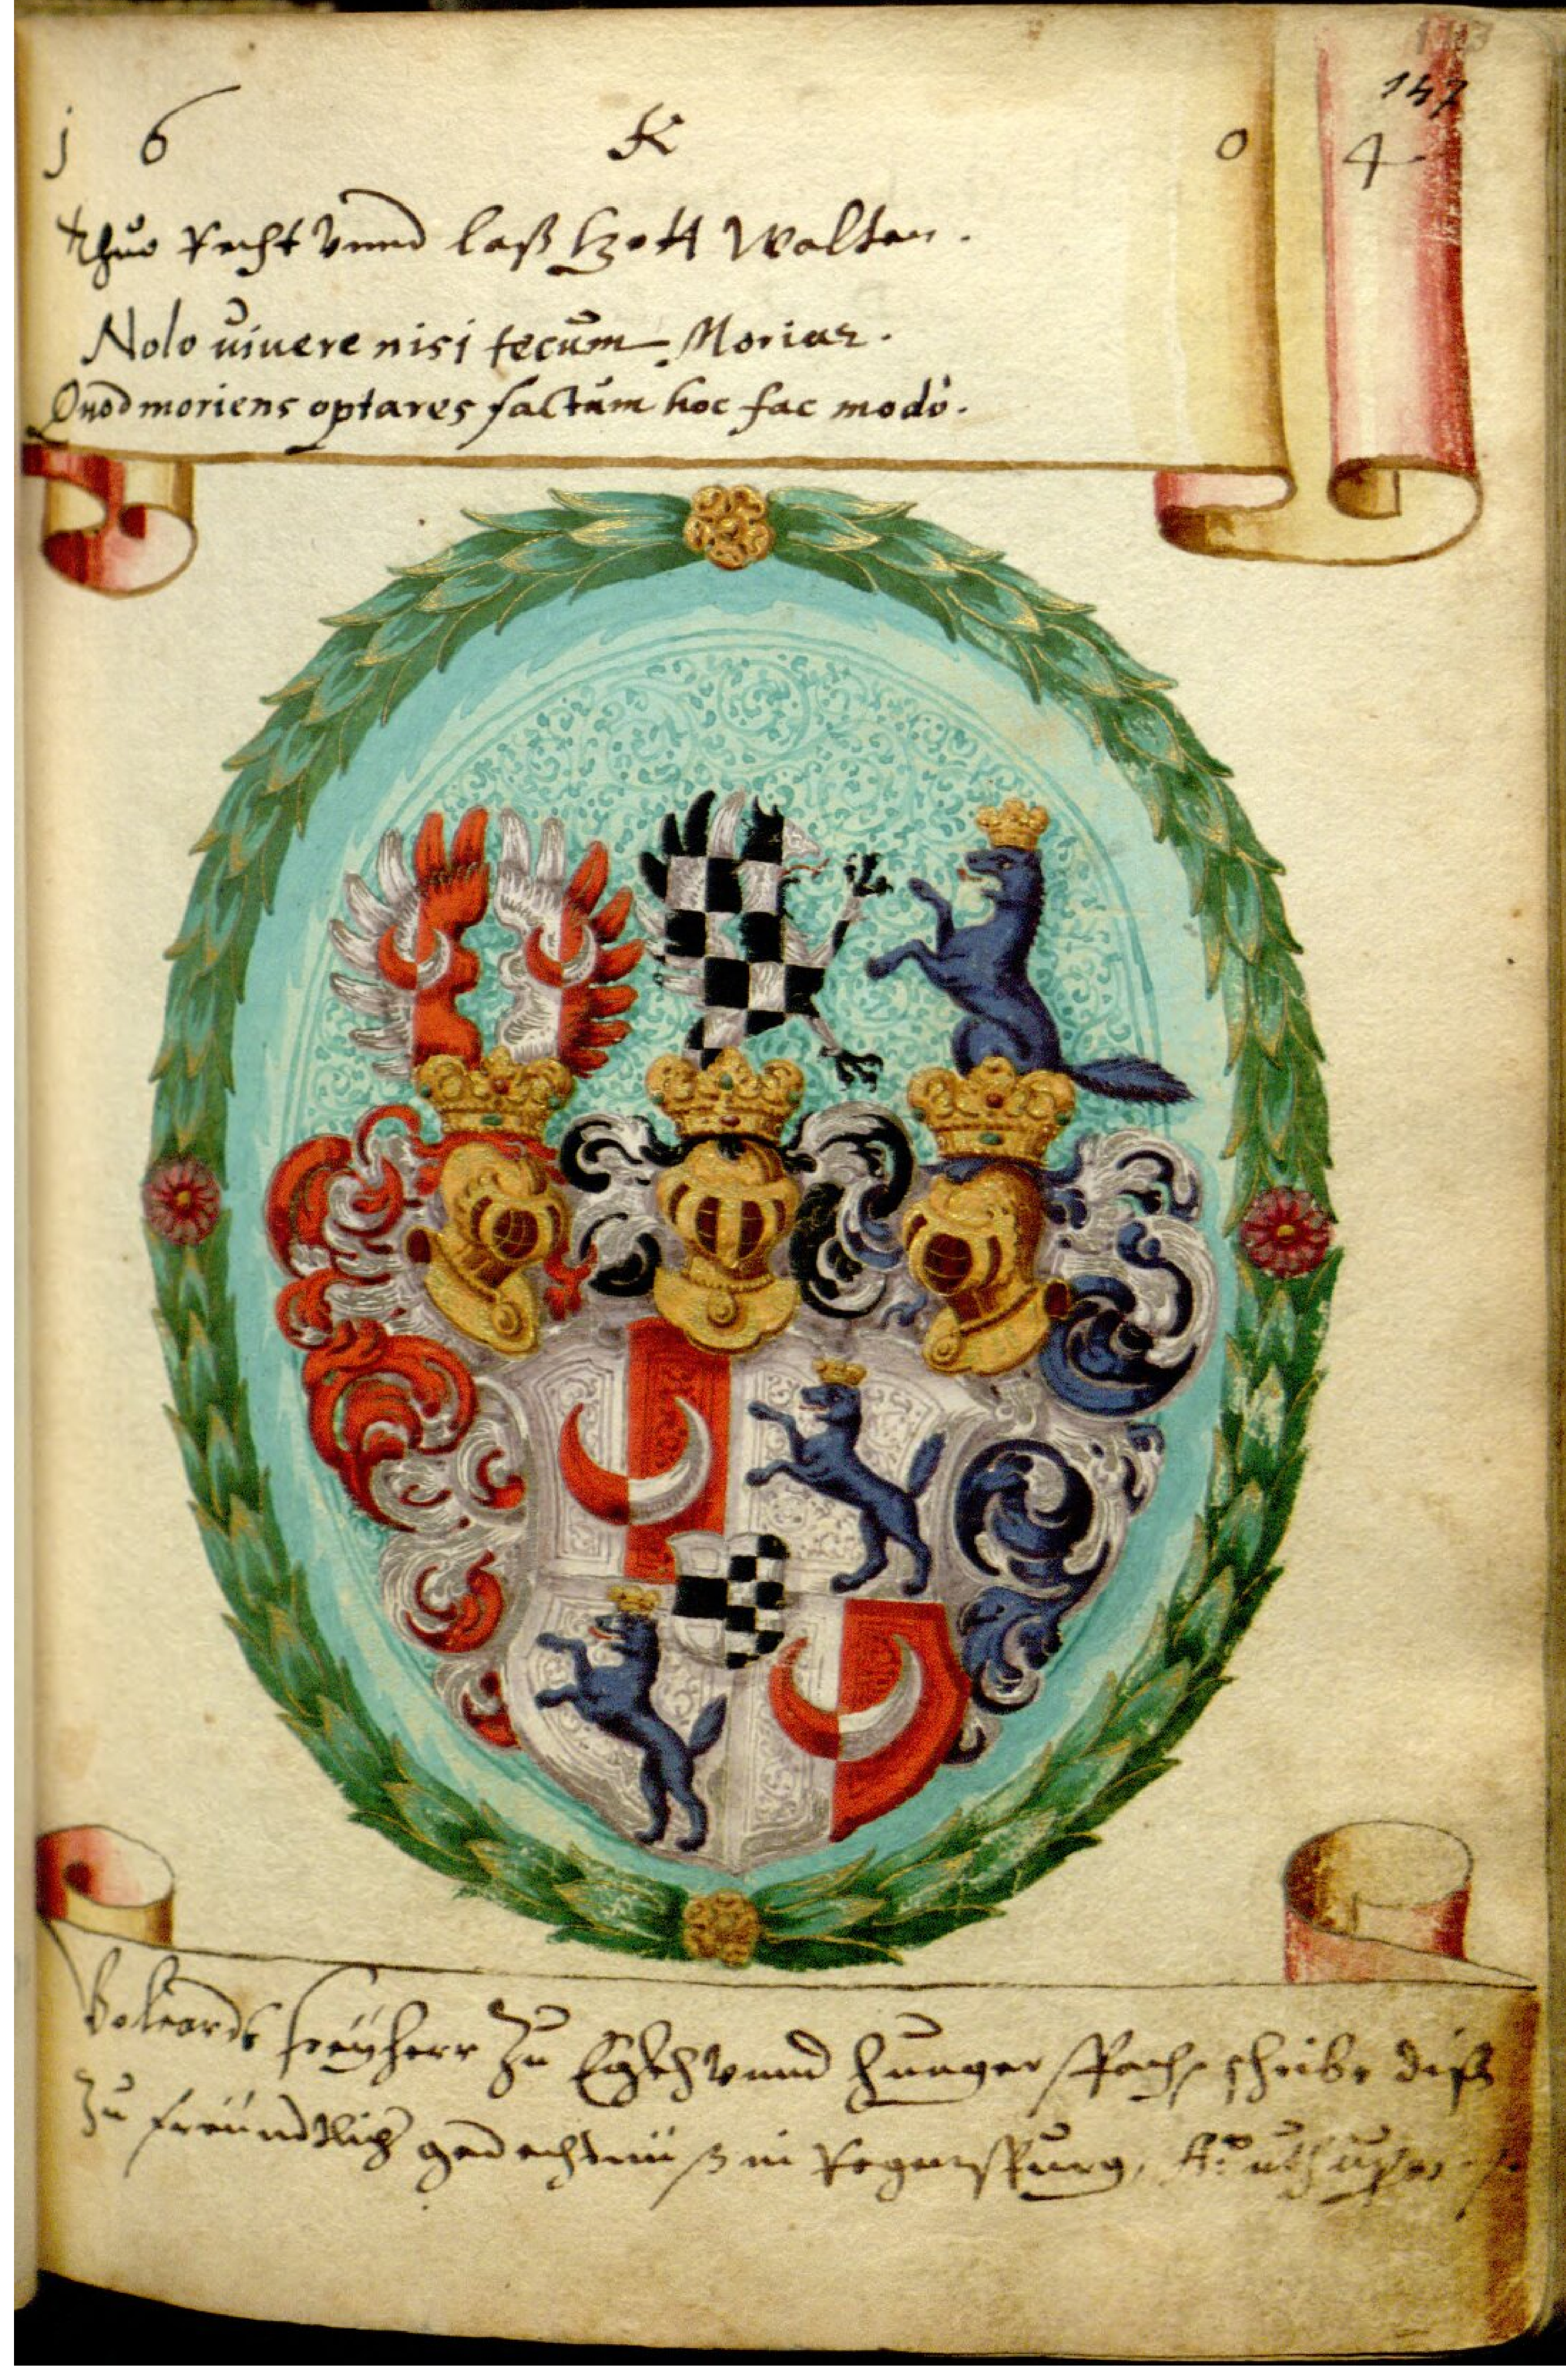 147
j 6 K 0 4
Thue Recht vnnd laß Gott Walten.
Nolo uiuere nisi tecum Moriar.
Quod moriens optares factum hoc fac modò.
freÿherr zu Egkh vnnd Hungerspach schreibe diß
zu freündtlich gedechtnüß in Regenspurg,